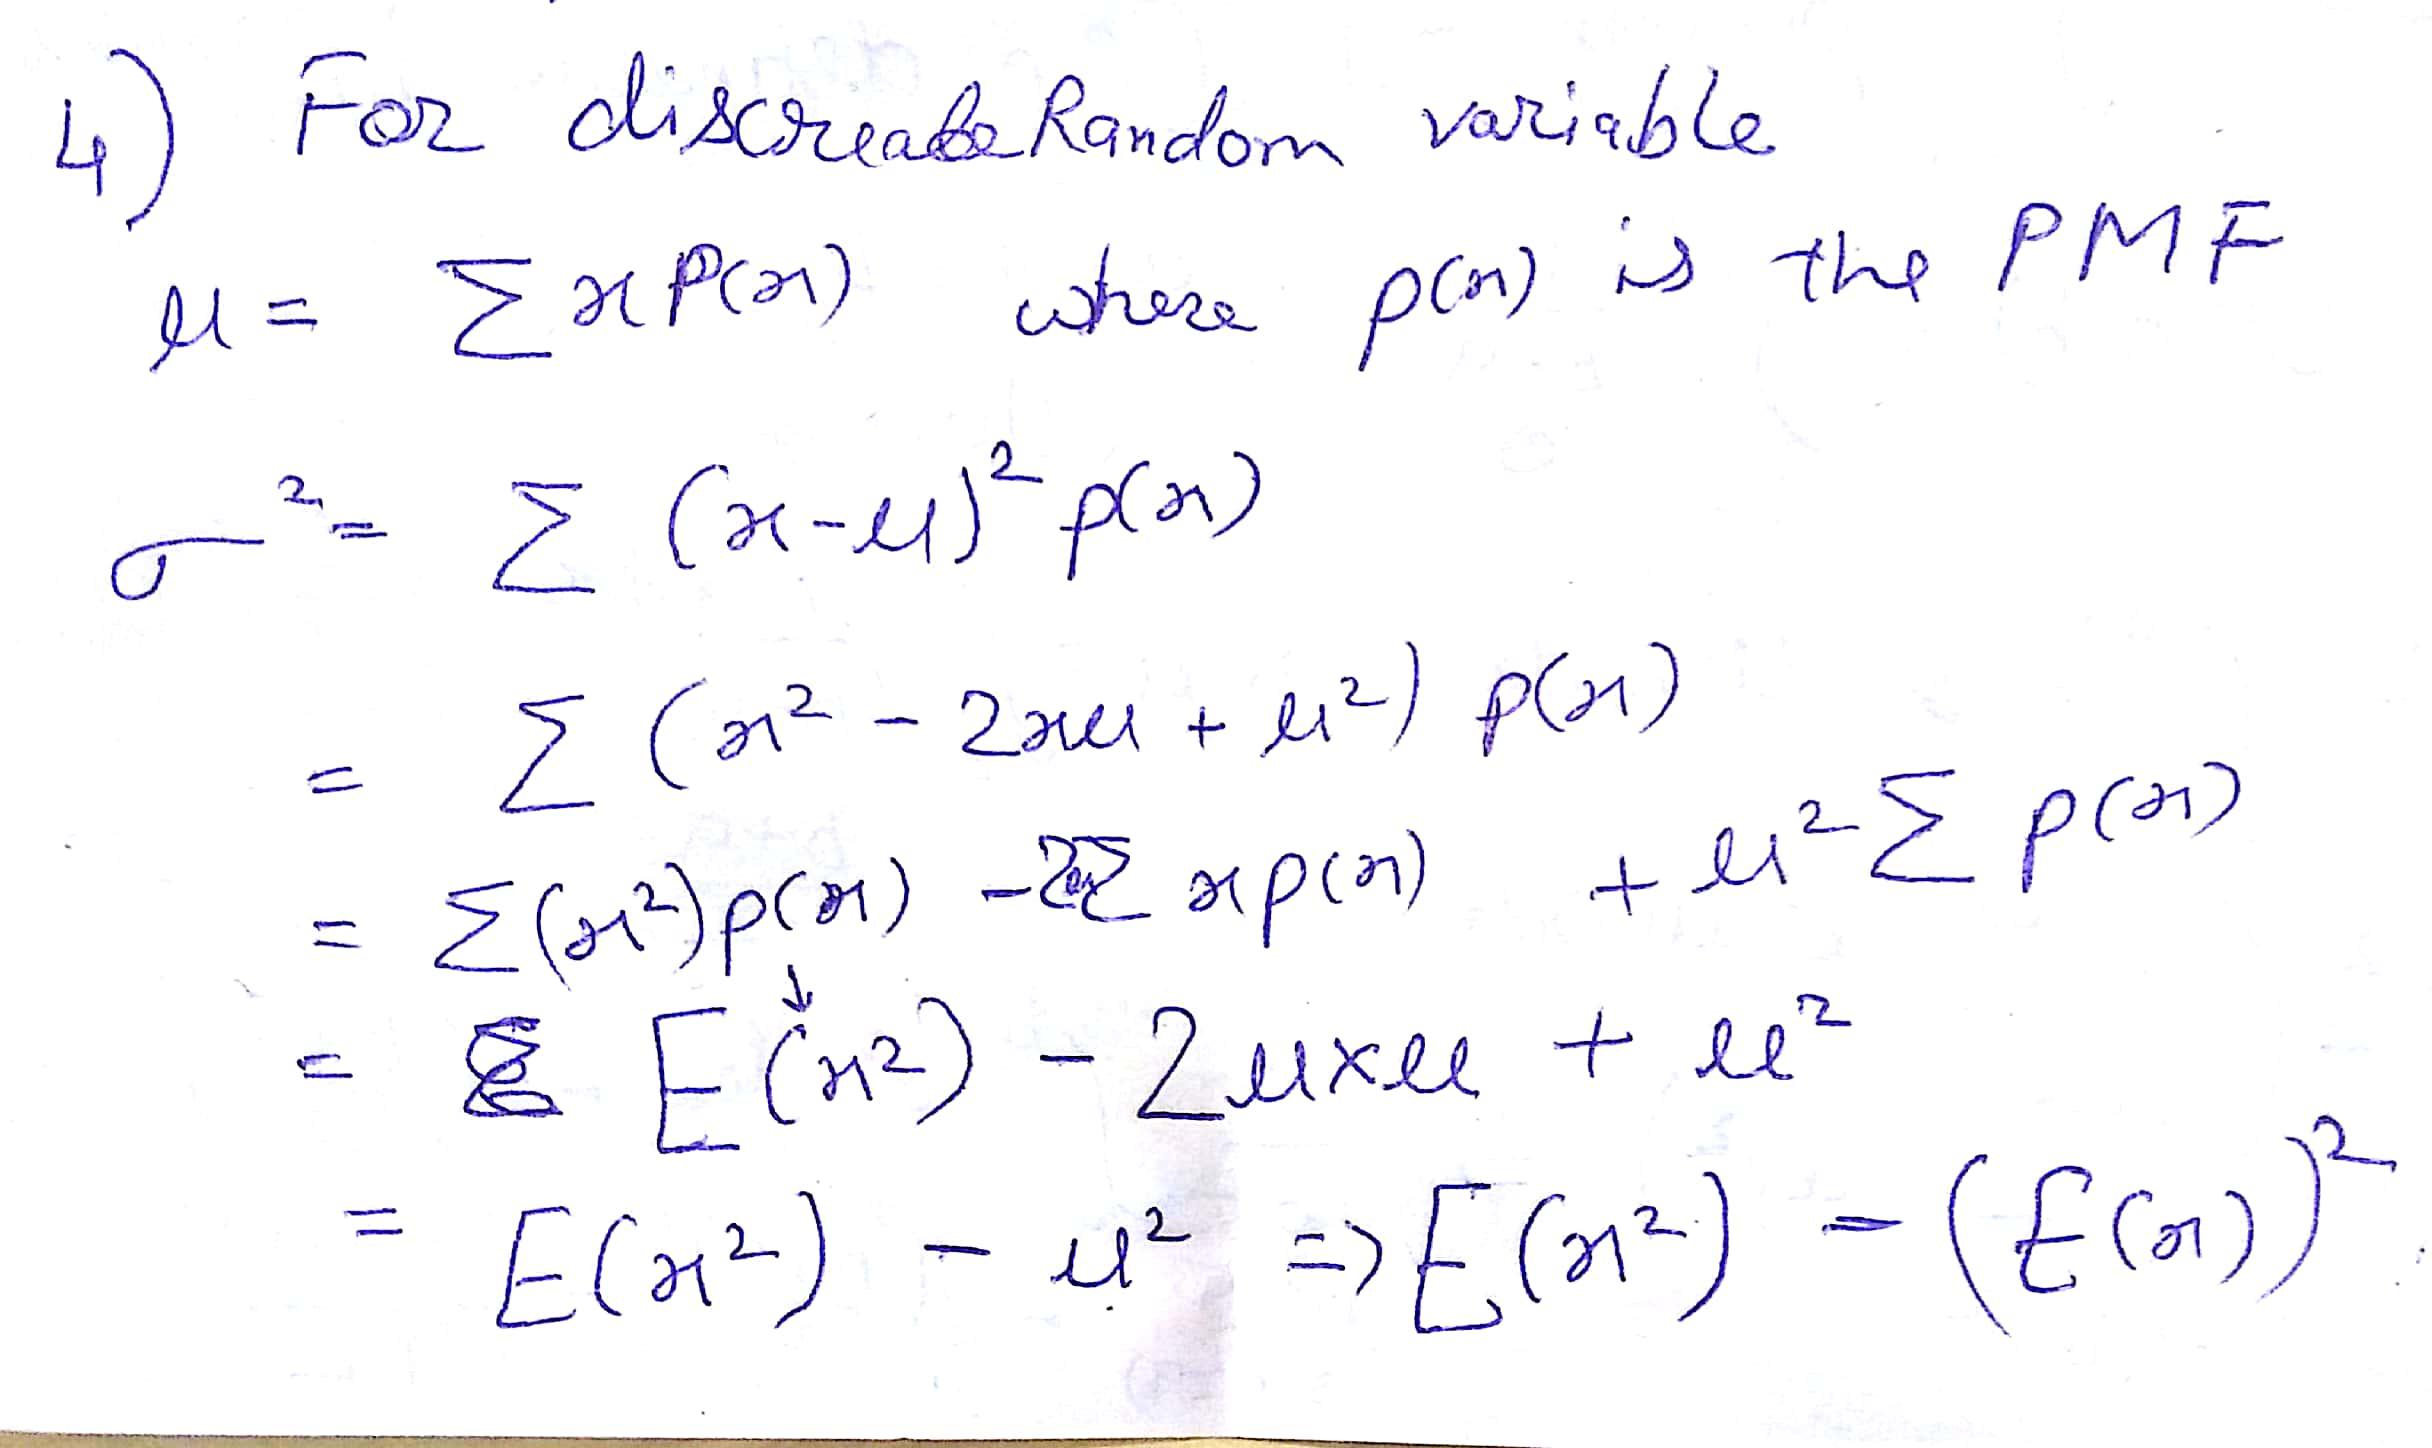 4) For discreate Random variable
μ = Σ x P(x) where p(x) is the PMF
σ² = Σ (x-μ)² p(x)
= Σ (x² - 2xμ + μ²) p(x)
= Σ(x²)p(x) - 2μΣ x p(x) + μ² Σ p(x)
= E(x²) - 2μ×μ + μ²
= E(x²) - μ² => E(x²) - (E(x))²